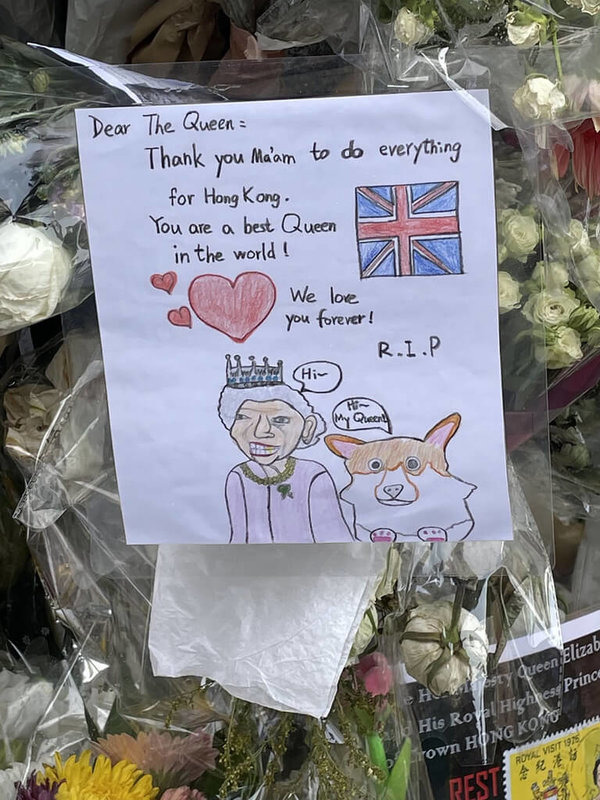 Dear The Queen:
Thank you Ma'am to do everything
for Hong Kong.
You are a best Queen
in the world!
We love
you forever!
R.I.P
Hi~
Hi~
My Queen!
Her Majesty Queen Elizab
His Royal Highness Prince
Crown HONG KONG
REST
ROYAL VISIT 1975
念紀港訪